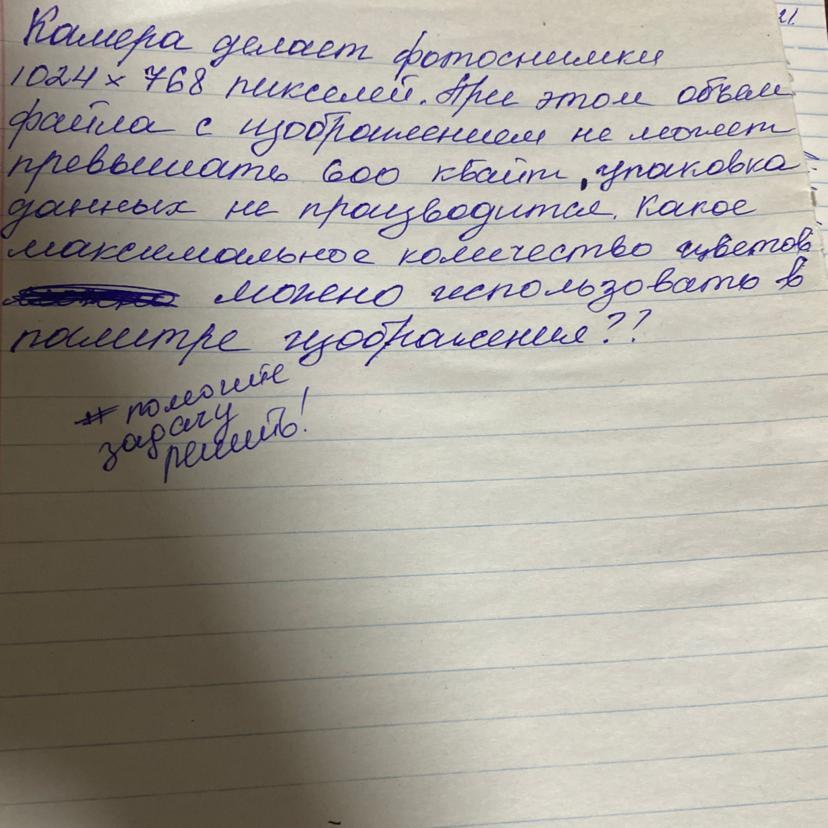 Камера делает фотоснимки
1024 × 768 пикселей. При этом объем
файла с изображением не может
превышать 600 кбайт, упаковка
данных не производится. Какое
максимальное количество цветов
можно использовать в
палитре изображения??
помогите
задачу
решить!
21